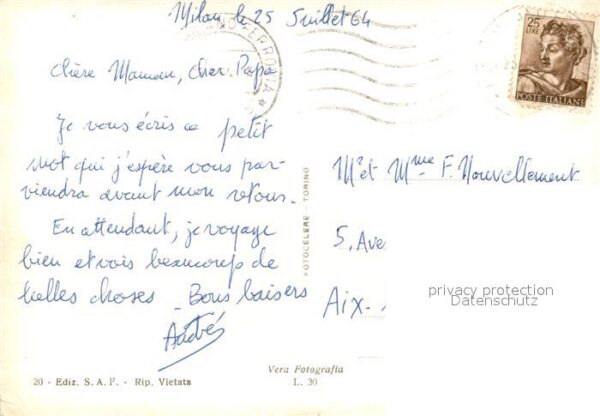 Milan le 25 Juillet 64
FERROVIA
25
LIRE
POSTE ITALIANE
Chère Maman, cher Papa
Je vous écris ce petit
mot qui j'espère vous par-
viendra avant mon retour.
En attendant, je voyage
bien et vois beaucoup de
belles choses - Bons baisers
André
Mr et Mme F. Nouvellement
5, Ave
Aix-
privacy protection
Datenschutz
FOTOCELERE - TORINO
20 - Ediz. S. A. F. - Rip. Vietata
Vera Fotografia
L. 30